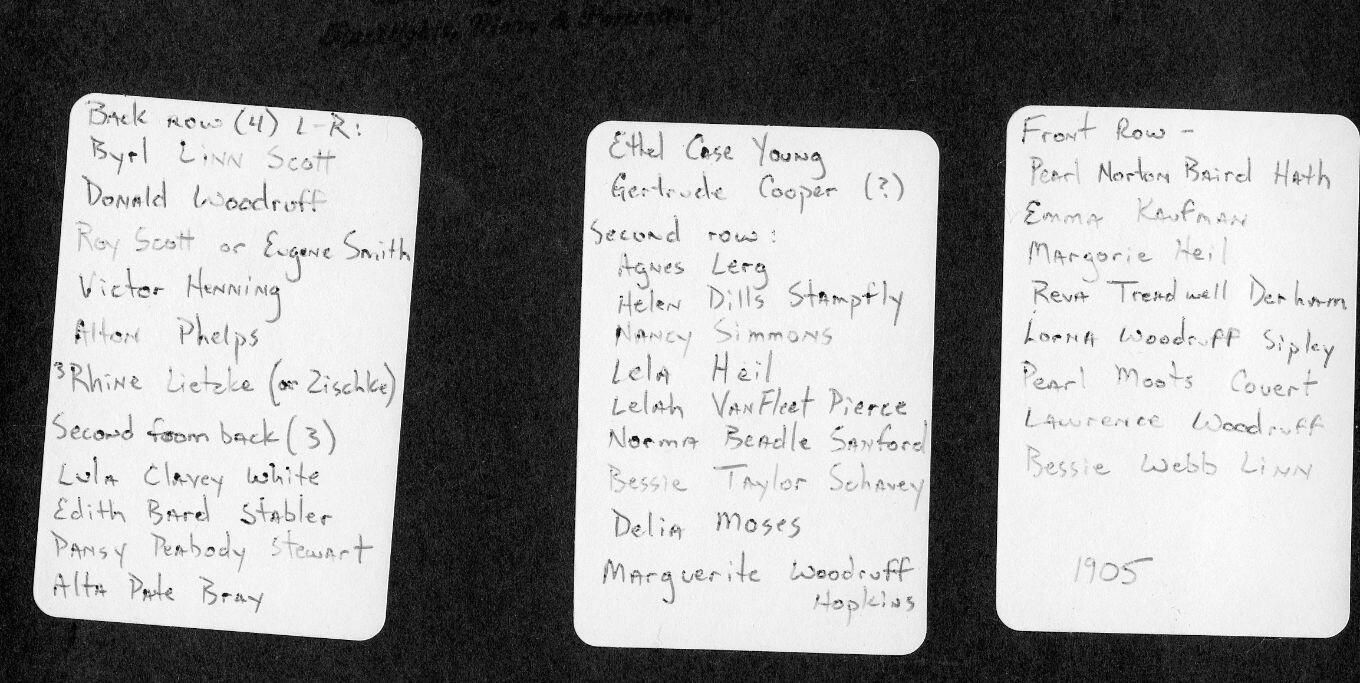 Back row (4) L-R:
Byrl Linn Scott
Donald Woodruff
Roy Scott or Eugene Smith
Victor Henning
Alton Phelps
3 Rhine Lietzke (or Zischke)
Second from back (3)
Lula Clavey White
Edith Bard Stabler
Pansy Peabody Stewart
Alta Pate Bray
Ethel Case Young
Gertrude Cooper (?)
Second row:
Agnes Lerg
Helen Dills Stampfly
Nancy Simmons
Lela Heil
Lelah VanFleet Pierce
Norma Beadle Sanford
Bessie Taylor Schavey
Delia Moses
Marguerite Woodruff
Hopkins
Front Row -
Pearl Norton Baird Hath
Emma Kaufman
Margorie Heil
Reva Treadwell Derham
Lorna Woodruff Sipley
Pearl Moots Covert
Lawrence Woodruff
Bessie Webb Linn
1905